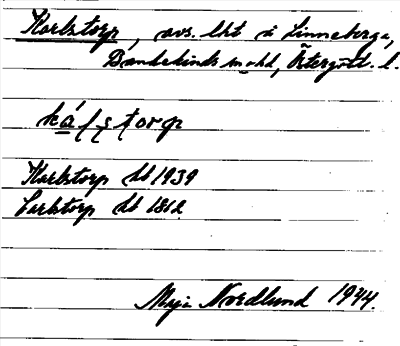 Karlstorp, avs. lht å Linneberga,
Bankekinds sn o hd, Östergötl. l.
ká̱ḷṣṭorp
Karlstorp Jb 1939
Carlstorp Jb 1812
Maja Nordlund 1944.